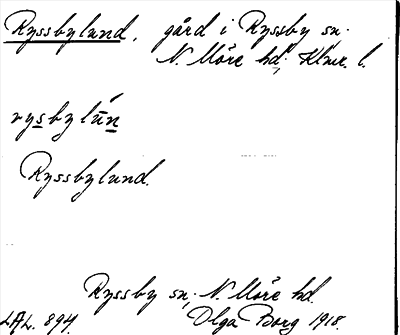 Ryssbylund, gård i Ryssby sn.
N. Möre hd., Klmr. l.
rysbylūń
Ryssbylund.
Ryssby sn, N. Möre hd.
LAL. 894. Olga Borg 1918.